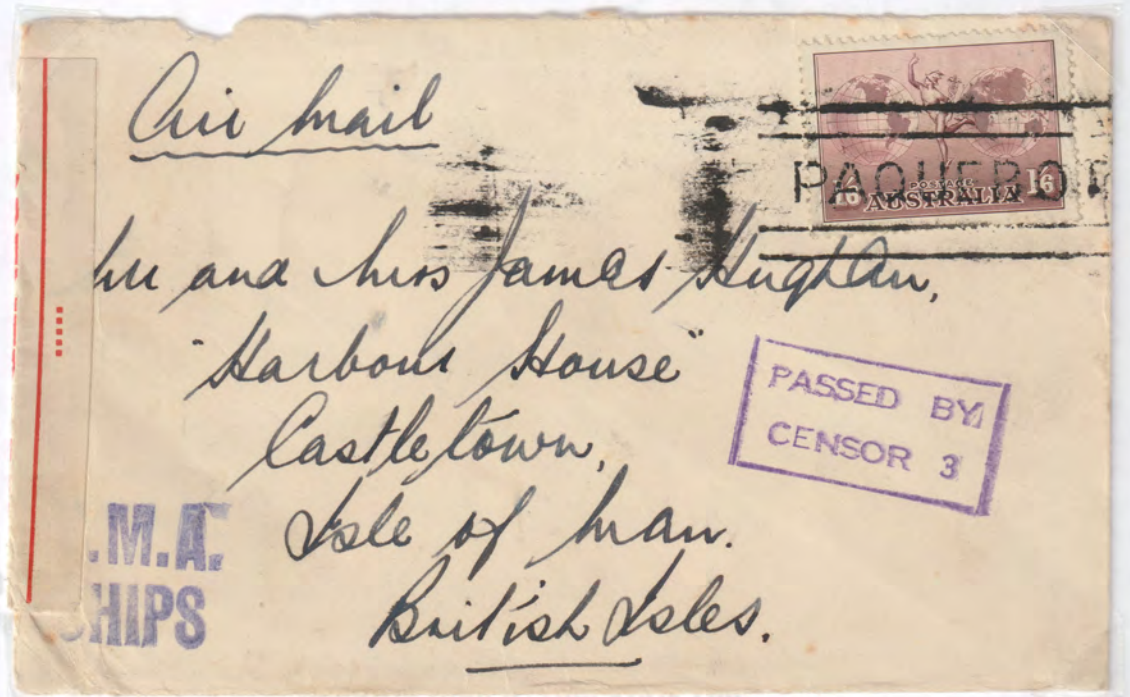 Air Mail
PAQUEBO
POSTAGE
1/6 AUSTRALIA 1/6
Mr and Mrs James Hughan,
"Harbour House"
Castletown,
Isle of Man.
British Isles.
PASSED BY
CENSOR 3
.M.A.
SHIPS